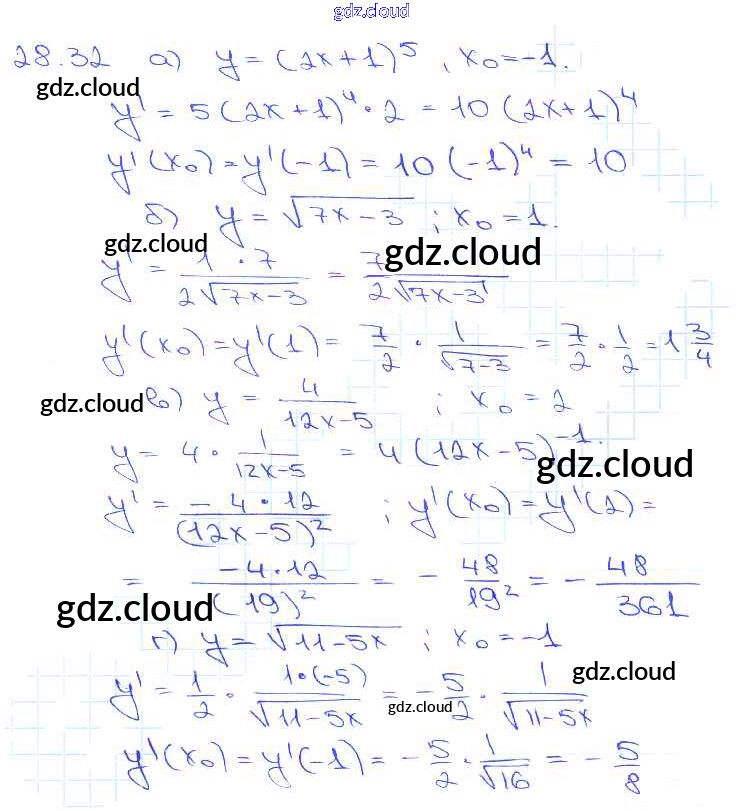 gdz.cloud
28.32 а) y = (2x+1)^5, x₀=-1.
gdz.cloud
y' = 5(2x+1)^4 · 2 = 10(2x+1)^4
y'(x₀) = y'(-1) = 10(-1)^4 = 10
б) y = √(7x-3) ; x₀ = 1.
gdz.cloud gdz.cloud
y' = (1·7)/(2√(7x-3)) = 7/(2√(7x-3))
y'(x₀) = y'(1) = 7/2 · 1/√(7-3) = 7/2 · 1/2 = 1 3/4
gdz.cloud в) y = 4/(12x-5) ; x₀ = 2
y = 4 · 1/(12x-5) = 4(12x-5)^-1.
gdz.cloud
y' = (-4·12)/(12x-5)² ; y'(x₀) = y'(2) =
= (-4·12)/(19)² = -48/19² = -48/361
gdz.cloud
г) y = √(11-5x) ; x₀ = -1
gdz.cloud
y' = 1/2 · (1·(-5))/√(11-5x) = -5/2 · 1/√(11-5x)
gdz.cloud
y'(x₀) = y'(-1) = -5/2 · 1/√16 = -5/8